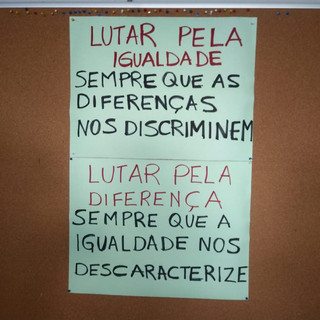 LUTAR PELA
IGUALDADE
SEMPRE QUE AS
DIFERENÇAS
NOS DISCRIMINEM
LUTAR PELA
DIFERENÇA
SEMPRE QUE A
IGUALDADE NOS
DESCARACTERIZE